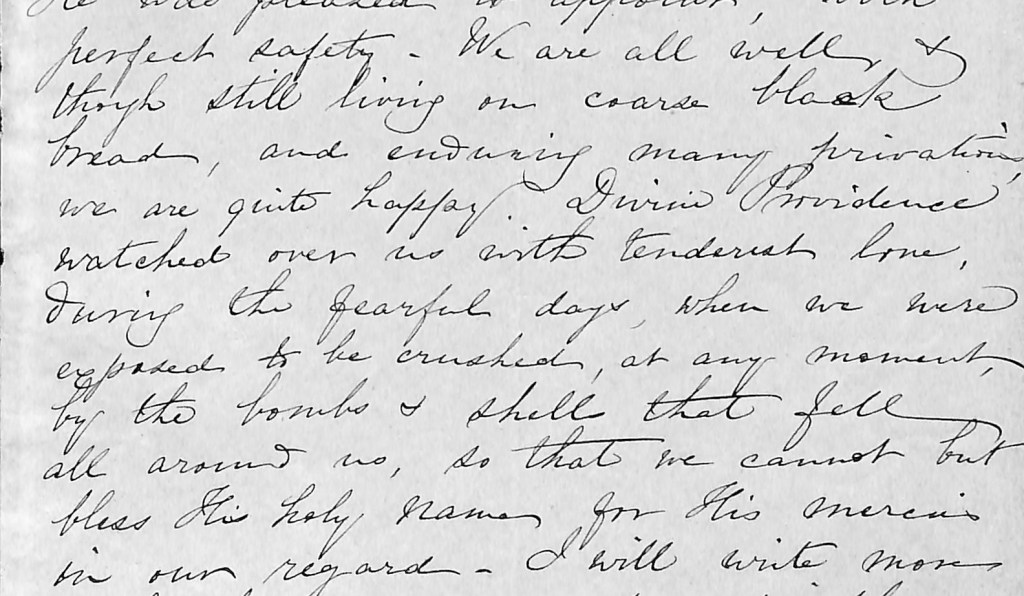 He was pleased to appoint, with
perfect safety - We are all well, &
though still living on coarse black
bread, and enduring many privations,
we are quite happy. Divine Providence
watched over us with tenderest love,
during the fearful days, when we were
exposed to be crushed, at any moment,
by the bombs & shells that fell
all around us, so that we cannot but
bless His holy name for His mercies
in our regard - I will write more